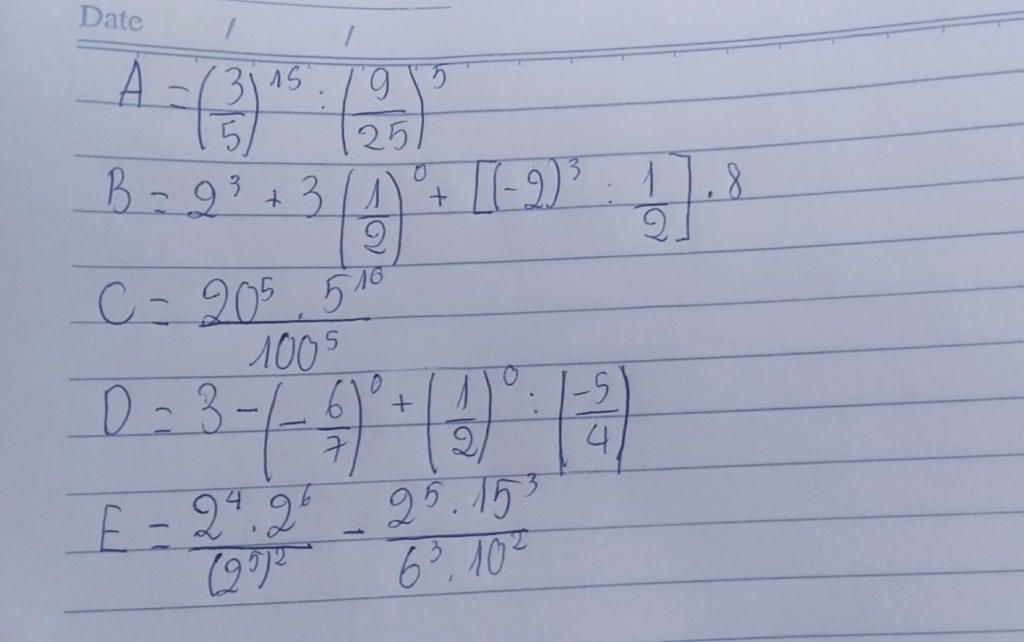 Date / /
A = (3/5)^15 : (9/25)^5
B = 2^3 + 3 (1/2)^0 + [(-2)^3 : 1/2] . 8
C = (20^5 . 5^10)/(100^5)
D = 3 - (- 6/7)^0 + (1/2)^0 : (-5/4)
E = (2^4 . 2^6)/((2^5)^2) - (2^5 . 15^3)/(6^3 . 10^2)